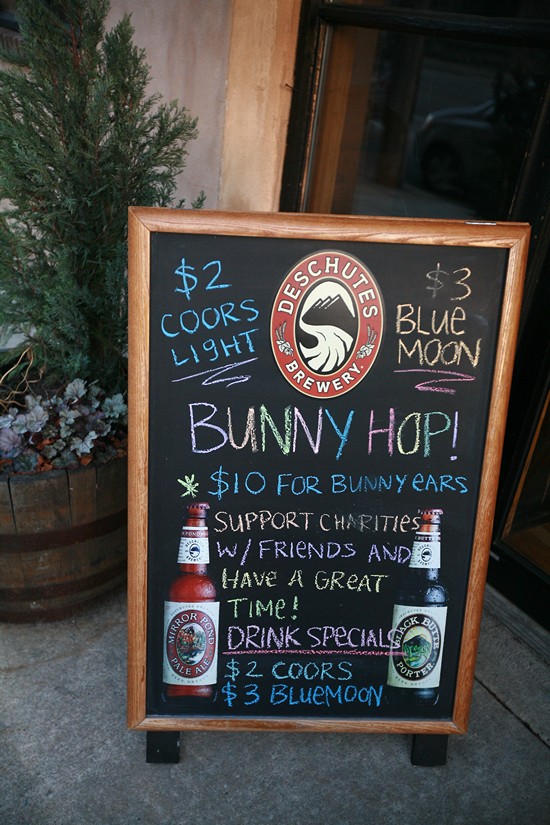 $2
COORS
LIGHT
DESCHUTES
BREWERY
$3
BLUE
MOON
BUNNY HOP!
* $10 FOR BUNNY EARS
SUPPORT CHARITIES
W/ FRIENDS AND
HAVE A GREAT
TIME!
DRINK SPECIALS
$2 COORS
$3 BLUEMOON
MIRROR POND
PALE ALE
BLACK BUTTE
PORTER